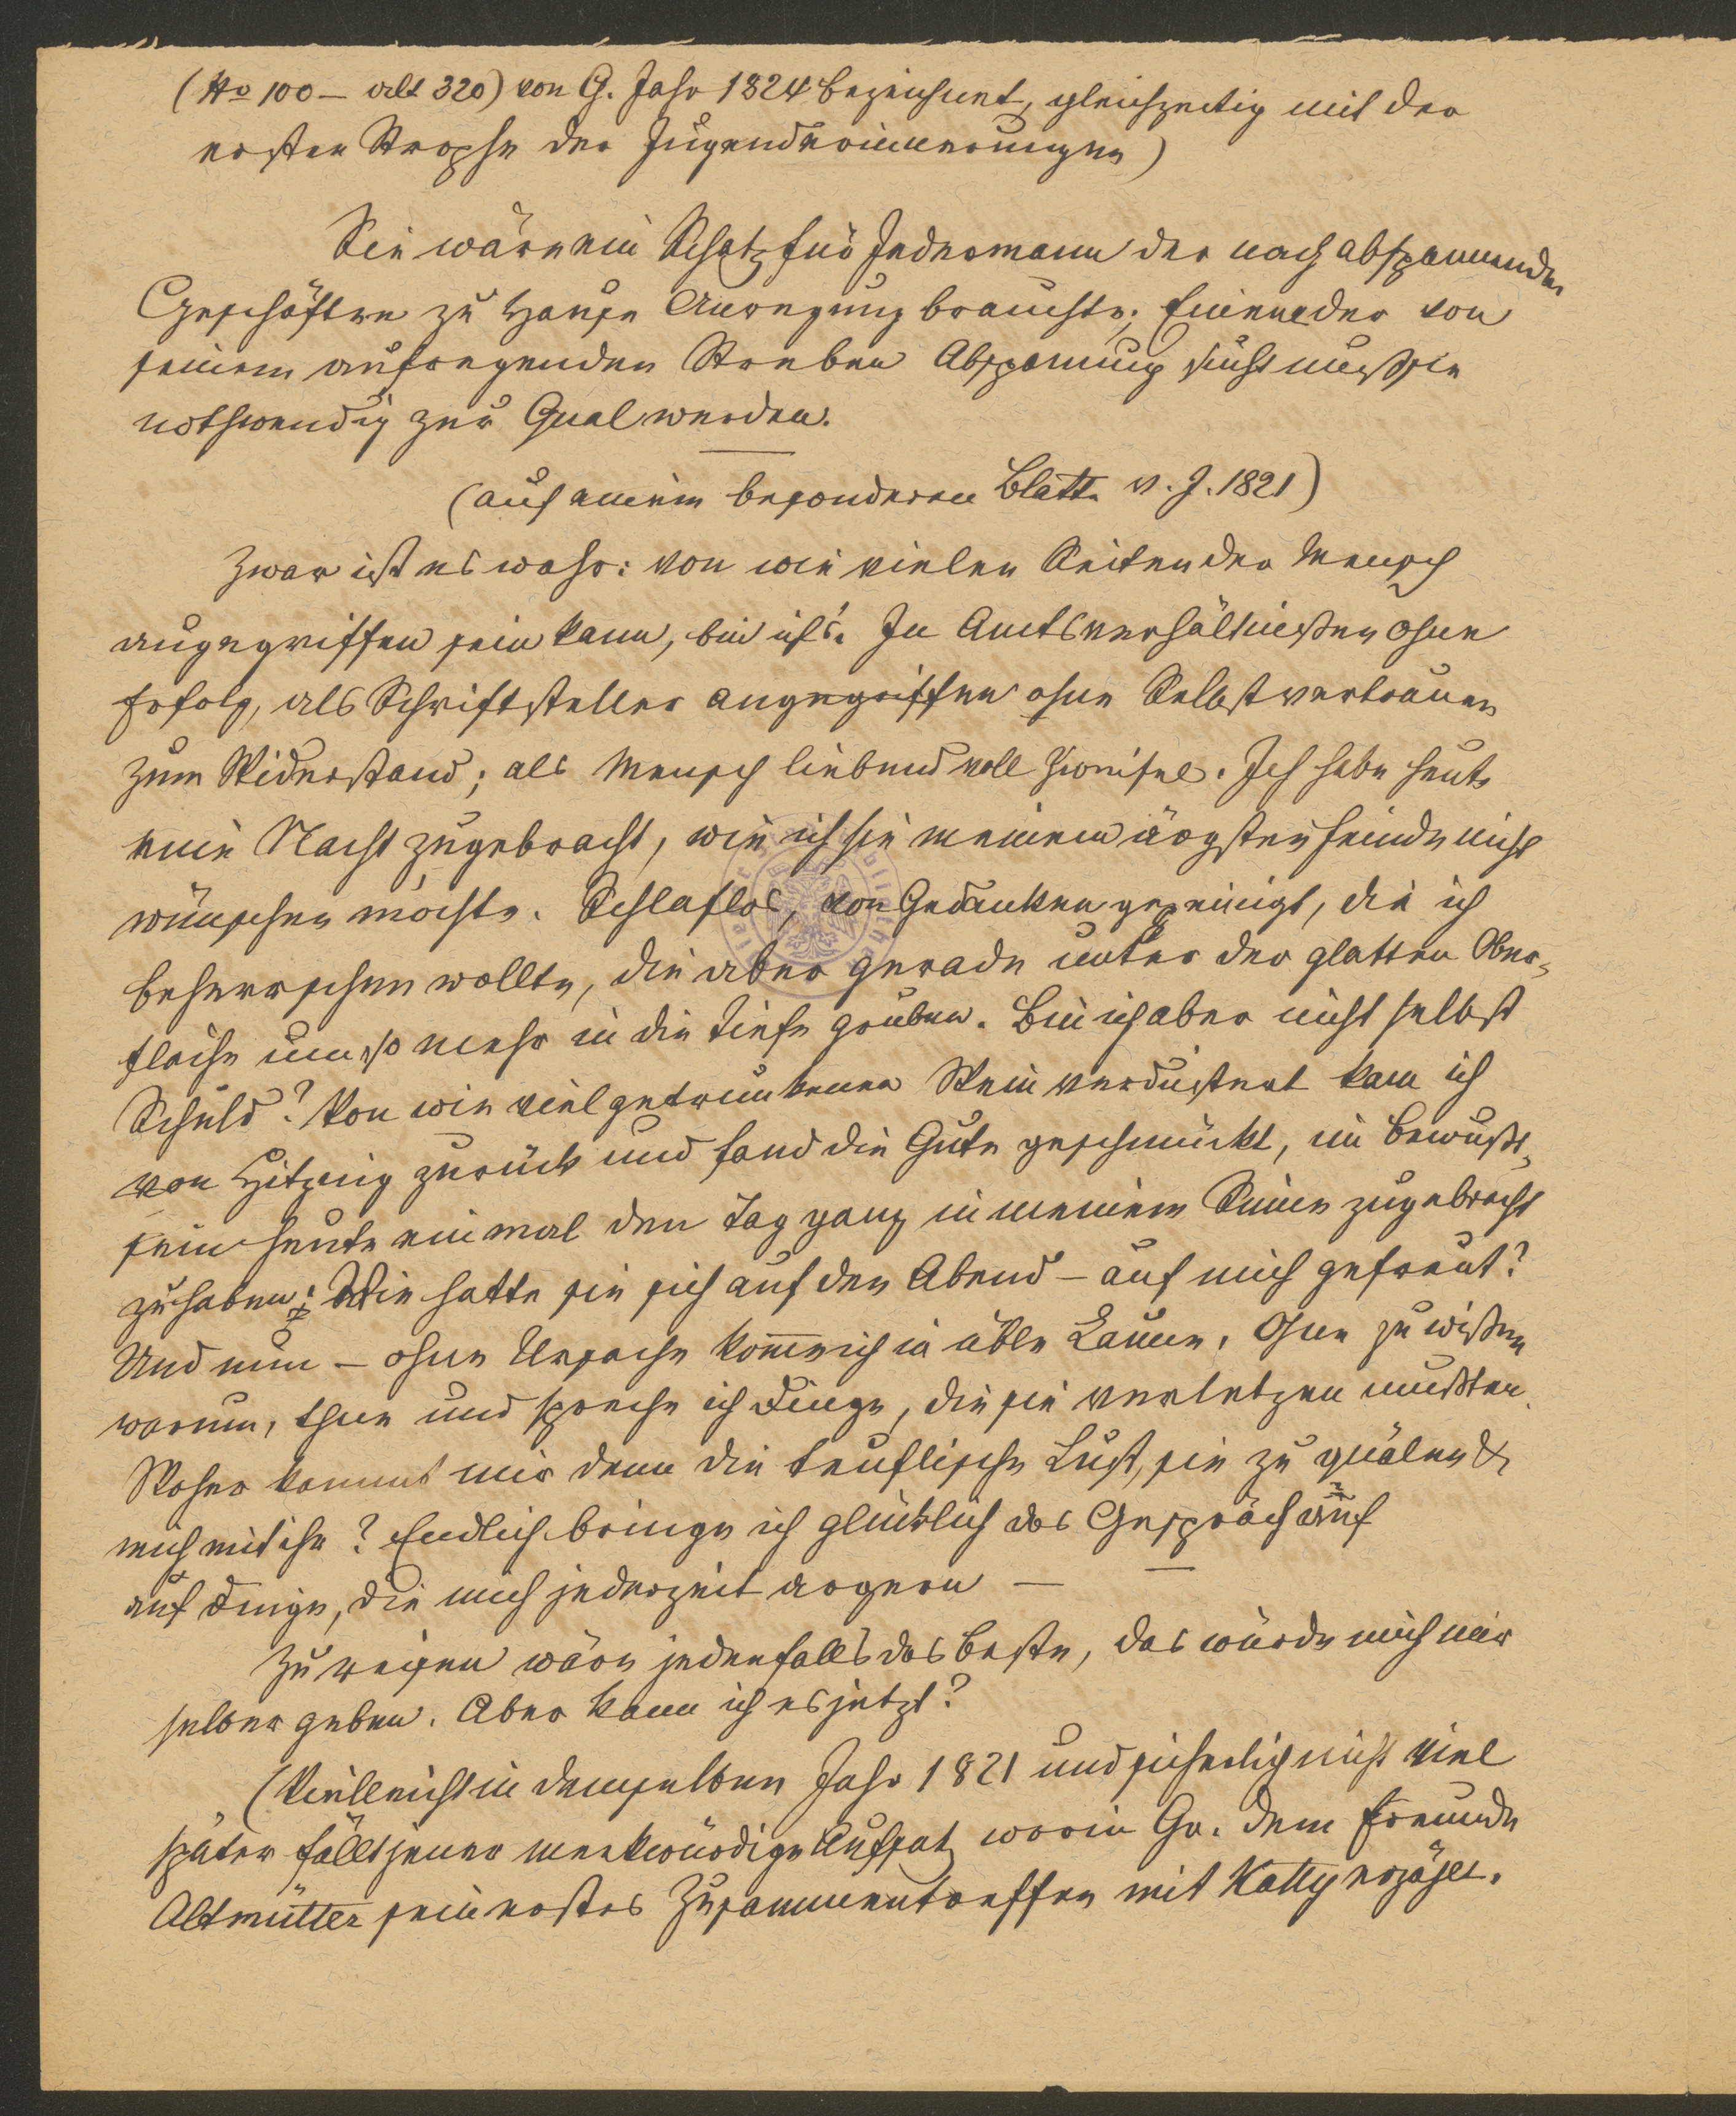 (No 100 – alt 320) von G. Jahr 1824 bezeichnet, gleichzeitig mit der
ersten Strophe der Jugenderinnerungen)
Sie wäre ein Schatz für Jedermann der nach abspannenden
Geschäften zu Hause Anregung brauchte; Einem der von
seinem aufregenden Streben Abspannung sucht muß sie
nothwendig zur Qual werden.
(auf einem besonderen Blatt v. J. 1821)
Zwar ist es wahr: von wie vielen Seiten der Mensch
angegriffen sein kann, bin ich's. In Amtsverhältnißen ohne
Erfolg, als Schriftsteller angegriffen ohne Selbstvertrauen
zum Widerstand; als Mensch liebend voll Zweifel. Ich habe heute
eine Nacht zugebracht, wie ich sie meinem ärgsten Feinde nicht
wünschen möchte. Schlaflos, von Gedanken gepeinigt, die ich
beherrschen wollte, die aber gerade unter der glatten Ober-
fläche um so mehr in die Tiefe gruben. Bin ich aber nicht selbst
Schuld? Von wie viel getrunkenen Wein verdüstert kam ich
von Hitzing zurück und fand die Gute geschmückt, im Bewußt-
sein heute einmal den Tag ganz in meinem Sinne zugebracht
zu haben; Wie hatte sie sich auf den Abend – auf mich gefreut?
Und nun – ohne Ursache kom̄e ich in üble Laune, Ohne zu wißen
warum, thue und spreche ich Dinge, die sie verletzen mußten.
Woher kommt mir denn die teuflische Lust, sie zu quälen &
mich mit ihr? Endlich bringe ich glücklich das Gespräch auf
auf Dinge, die mich jederzeit ärgern — —
Zu reisen wäre jedenfalls das Beste, das würde mich mir
selber geben. Aber kann ich es jetzt?
(Vielleicht in demselben Jahr 1821 und sicherlich nicht viel
später fällt jener merkwürdige Aufsatz worin Gr. dem Freunde
Altmütter sein erstes Zusammentreffen mit Katty erzählt.